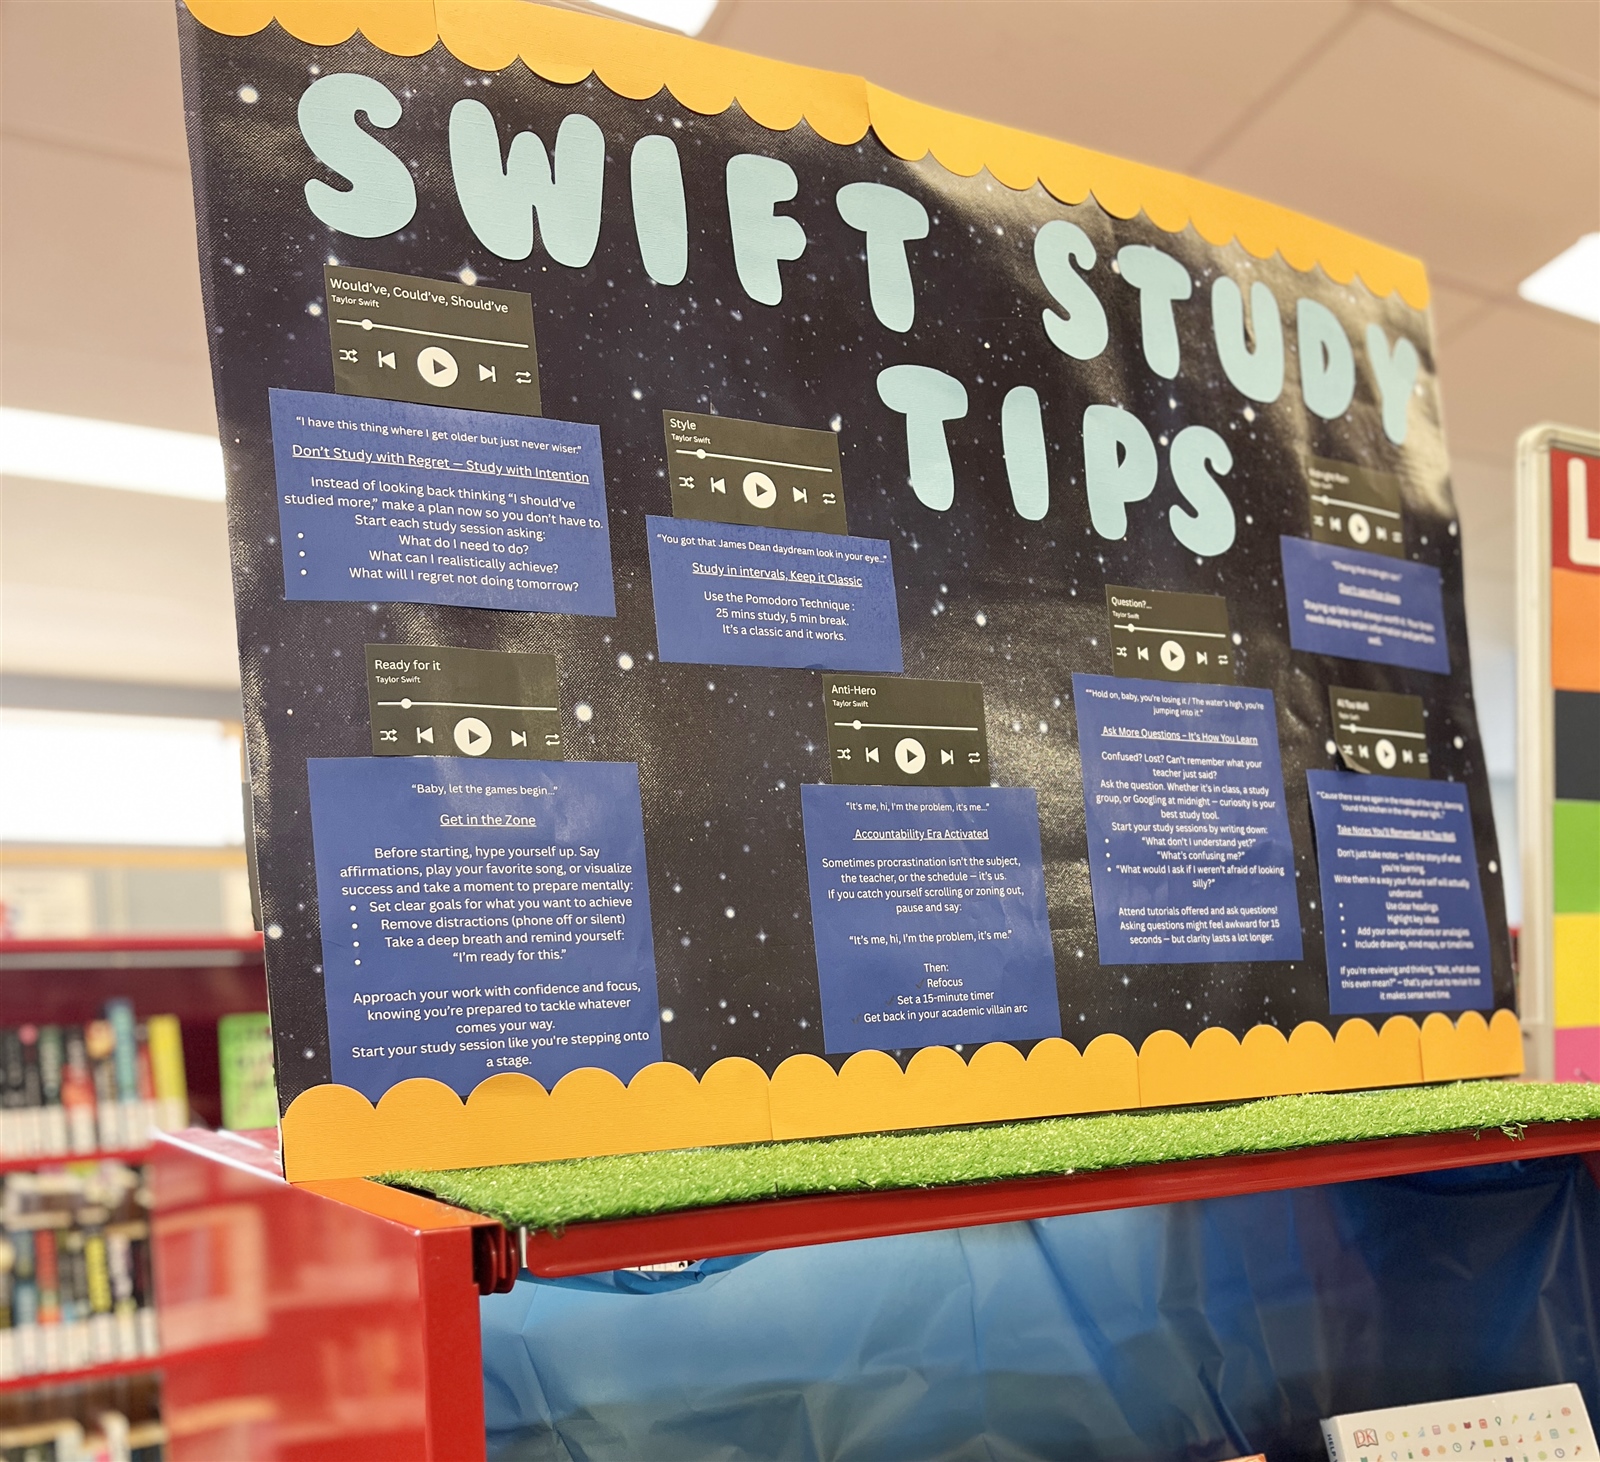 SWIFT STUDY
TIPS
Would've, Could've, Should've
Taylor Swift
"I have this thing where I get older but just never wiser."
Don't Study with Regret — Study with Intention
Instead of looking back thinking "I should've
studied more," make a plan now so you don't have to.
Start each study session asking:
• What do I need to do?
• What can I realistically achieve?
• What will I regret not doing tomorrow?
Style
Taylor Swift
"You got that James Dean daydream look in your eye..."
Study in intervals, Keep it Classic
Use the Pomodoro Technique :
25 mins study, 5 min break.
It's a classic and it works.
Midnight Rain
Taylor Swift
"Chasing that midnight rain"
Don't sacrifice sleep
Staying up late isn't always worth it. Your brain
needs sleep to retain information and perform
well.
Ready for it
Taylor Swift
"Baby, let the games begin..."
Get in the Zone
Before starting, hype yourself up. Say
affirmations, play your favorite song, or visualize
success and take a moment to prepare mentally:
• Set clear goals for what you want to achieve
• Remove distractions (phone off or silent)
• Take a deep breath and remind yourself:
• "I'm ready for this."
Approach your work with confidence and focus,
knowing you're prepared to tackle whatever
comes your way.
Start your study session like you're stepping onto
a stage.
Anti-Hero
Taylor Swift
"It's me, hi, I'm the problem, it's me..."
Accountability Era Activated
Sometimes procrastination isn't the subject,
the teacher, or the schedule — it's us.
If you catch yourself scrolling or zoning out,
pause and say:
"It's me, hi, I'm the problem, it's me."
Then:
✓ Refocus
✓ Set a 15-minute timer
✓ Get back in your academic villain arc
Question?...
Taylor Swift
""Hold on, baby, you're losing it / The water's high, you're
jumping into it."
Ask More Questions – It's How You Learn
Confused? Lost? Can't remember what your
teacher just said?
Ask the question. Whether it's in class, a study
group, or Googling at midnight — curiosity is your
best study tool.
Start your study sessions by writing down:
• "What don't I understand yet?"
• "What's confusing me?"
• "What would I ask if I weren't afraid of looking
silly?"
Attend tutorials offered and ask questions!
Asking questions might feel awkward for 15
seconds — but clarity lasts a lot longer.
All Too Well
Taylor Swift
"'Cause there we are again in the middle of the night, dancing
'round the kitchen in the refrigerator light.."
Take Notes You'll Remember All Too Well
Don't just take notes — tell the story of what
you're learning.
Write them in a way your future self will actually
understand:
• Use clear headings
• Highlight key ideas
• Add your own explanations or analogies
• Include drawings, mind maps, or timelines
If you're reviewing and thinking, "Wait, what does
this even mean?" — that's your cue to revise it so
it makes sense next time.
L
DK
HELP